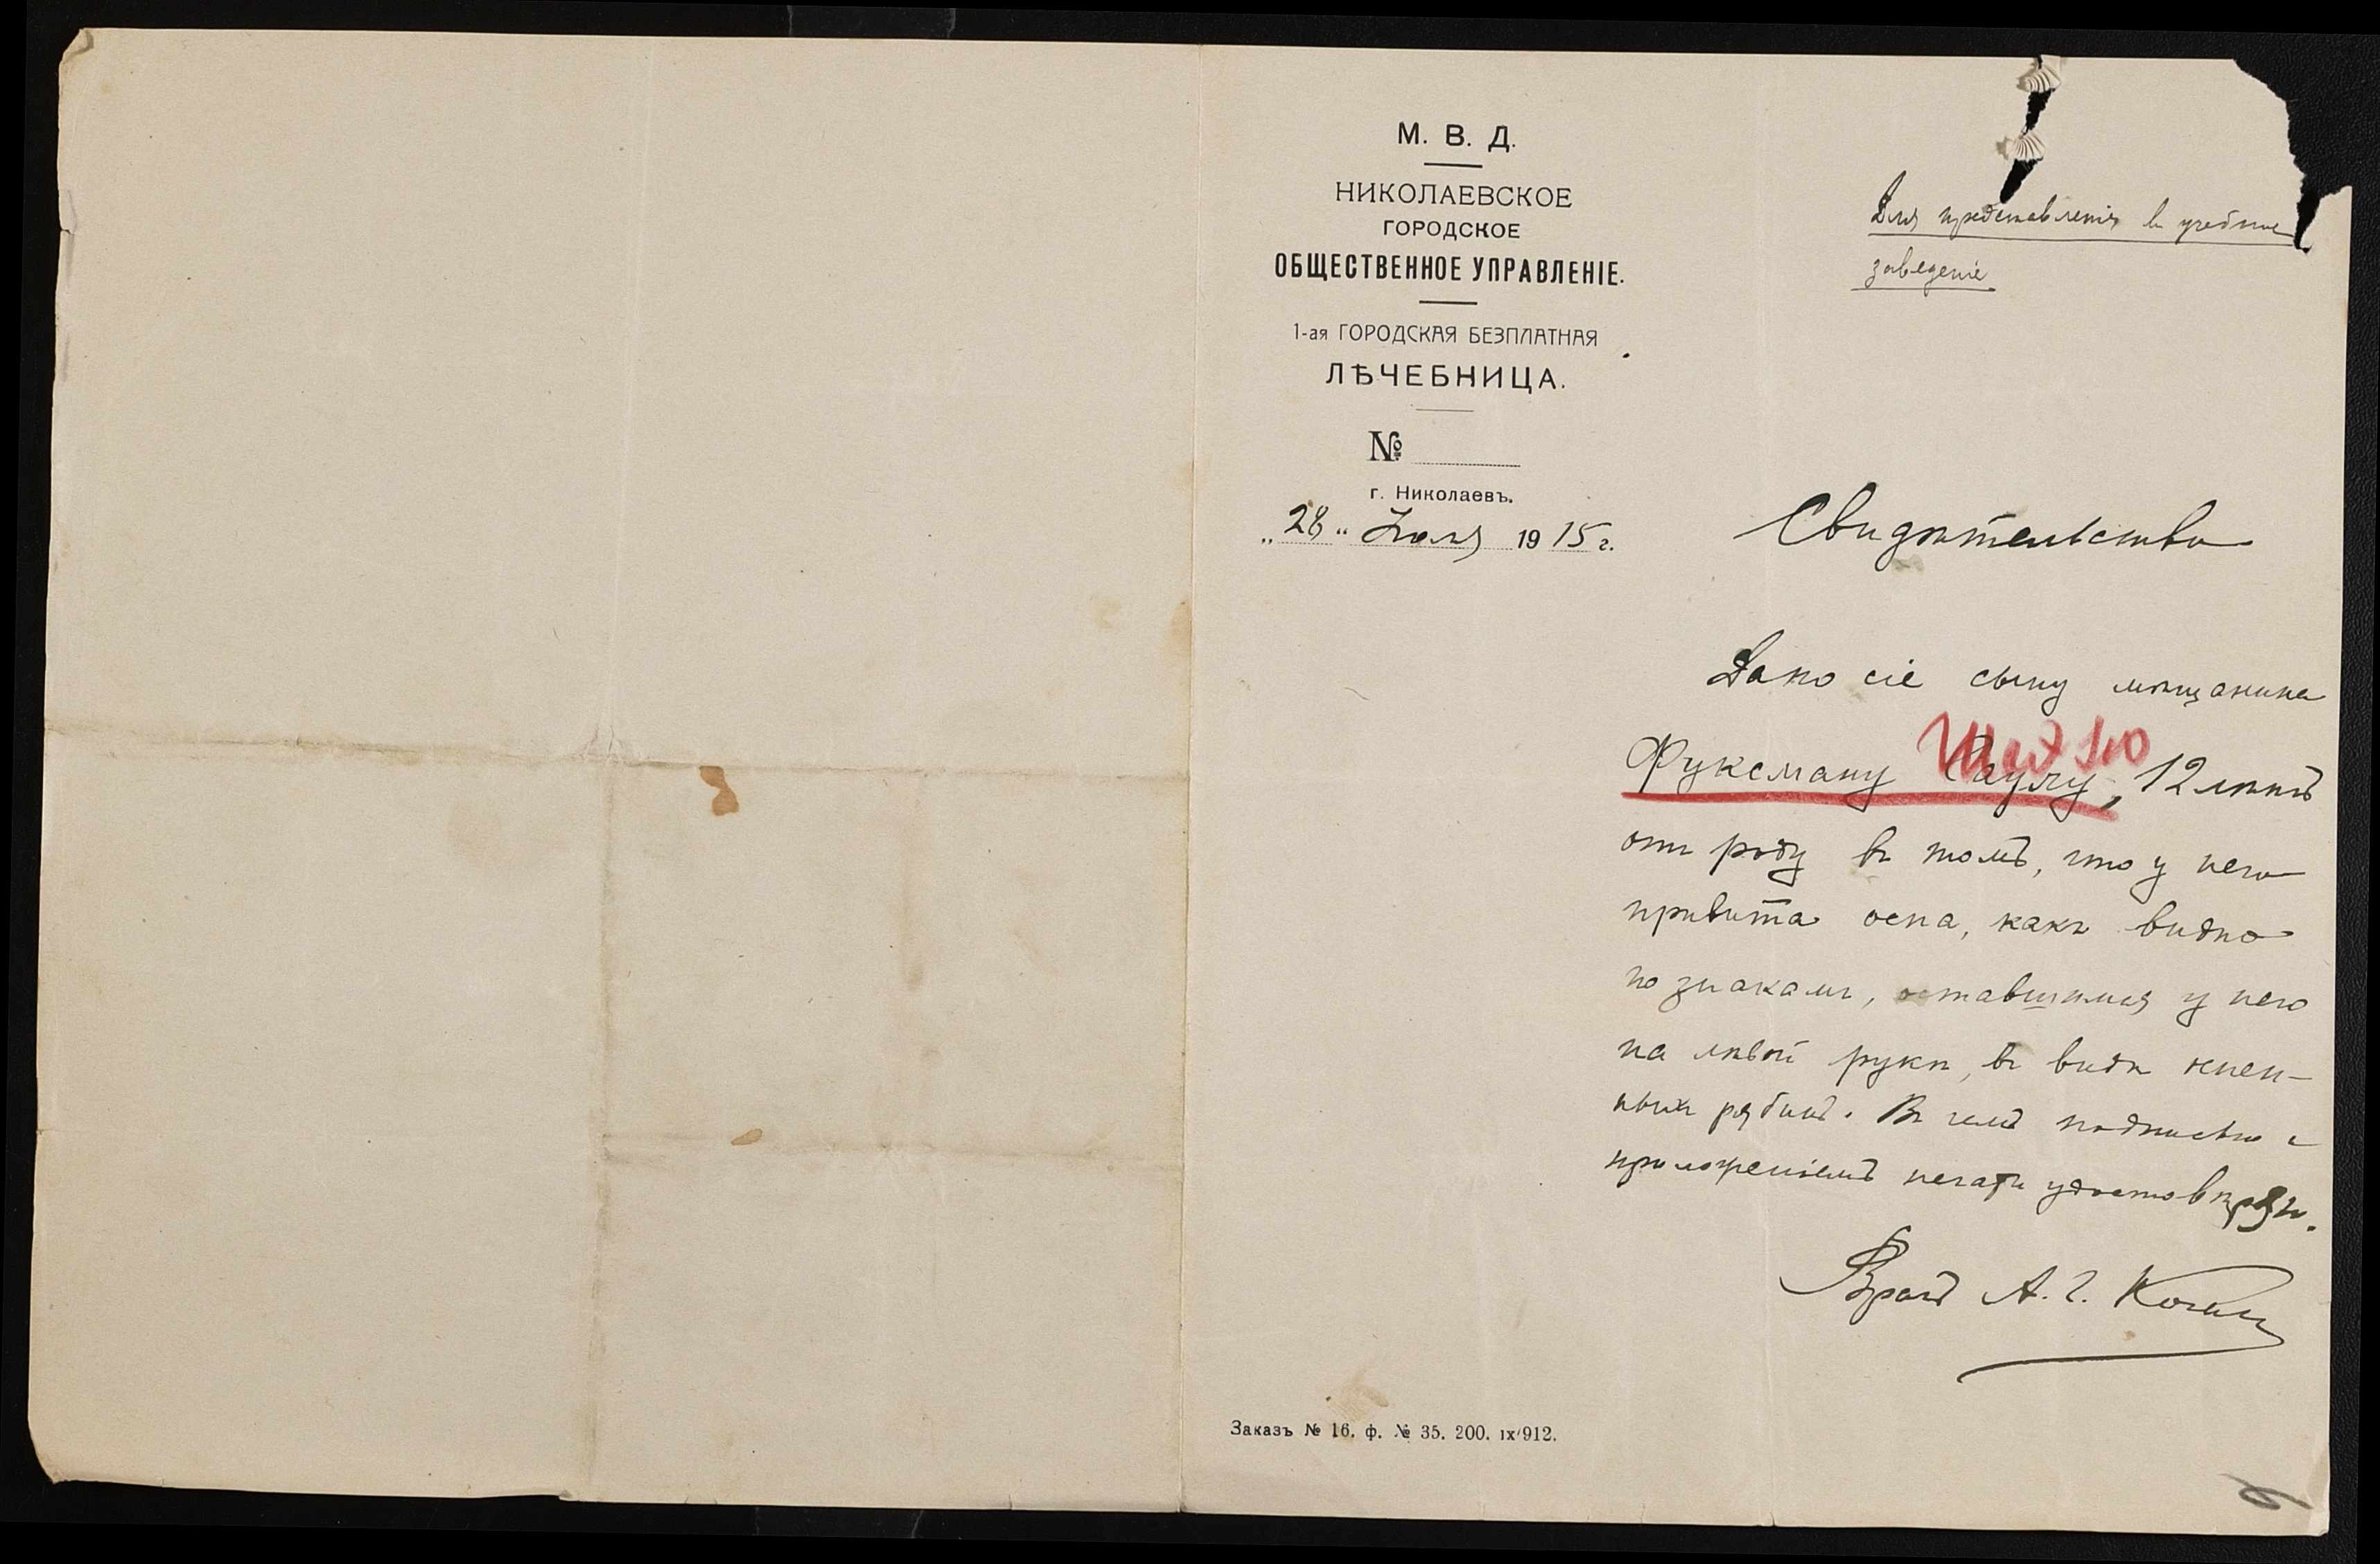 М. В. Д.
НИКОЛАЕВСКОЕ
ГОРОДСКОЕ
ОБЩЕСТВЕННОЕ УПРАВЛЕНІЕ.
1-ая ГОРОДСКАЯ БЕЗПЛАТНАЯ
ЛѢЧЕБНИЦА.
№
г. Николаевъ.
„28“ Іюля 1915 г.
Для представленія въ учебное
заведеніе
Свидѣтельство
Дано сіе сыну мѣщанина
Фуксману Саулу, 12 лѣтъ
отъ роду въ томъ, что у него
привита оспа, какъ видно
по знакамъ, оставшимся у него
на лѣвой рукѣ, въ видѣ оспен-
ныхъ рябинъ. Въ чемъ подписью и
приложеніемъ печати удостовѣряю.
Врачъ А. Г. Коганъ
Заказъ № 16. ф. № 35. 200. IX/912.
6